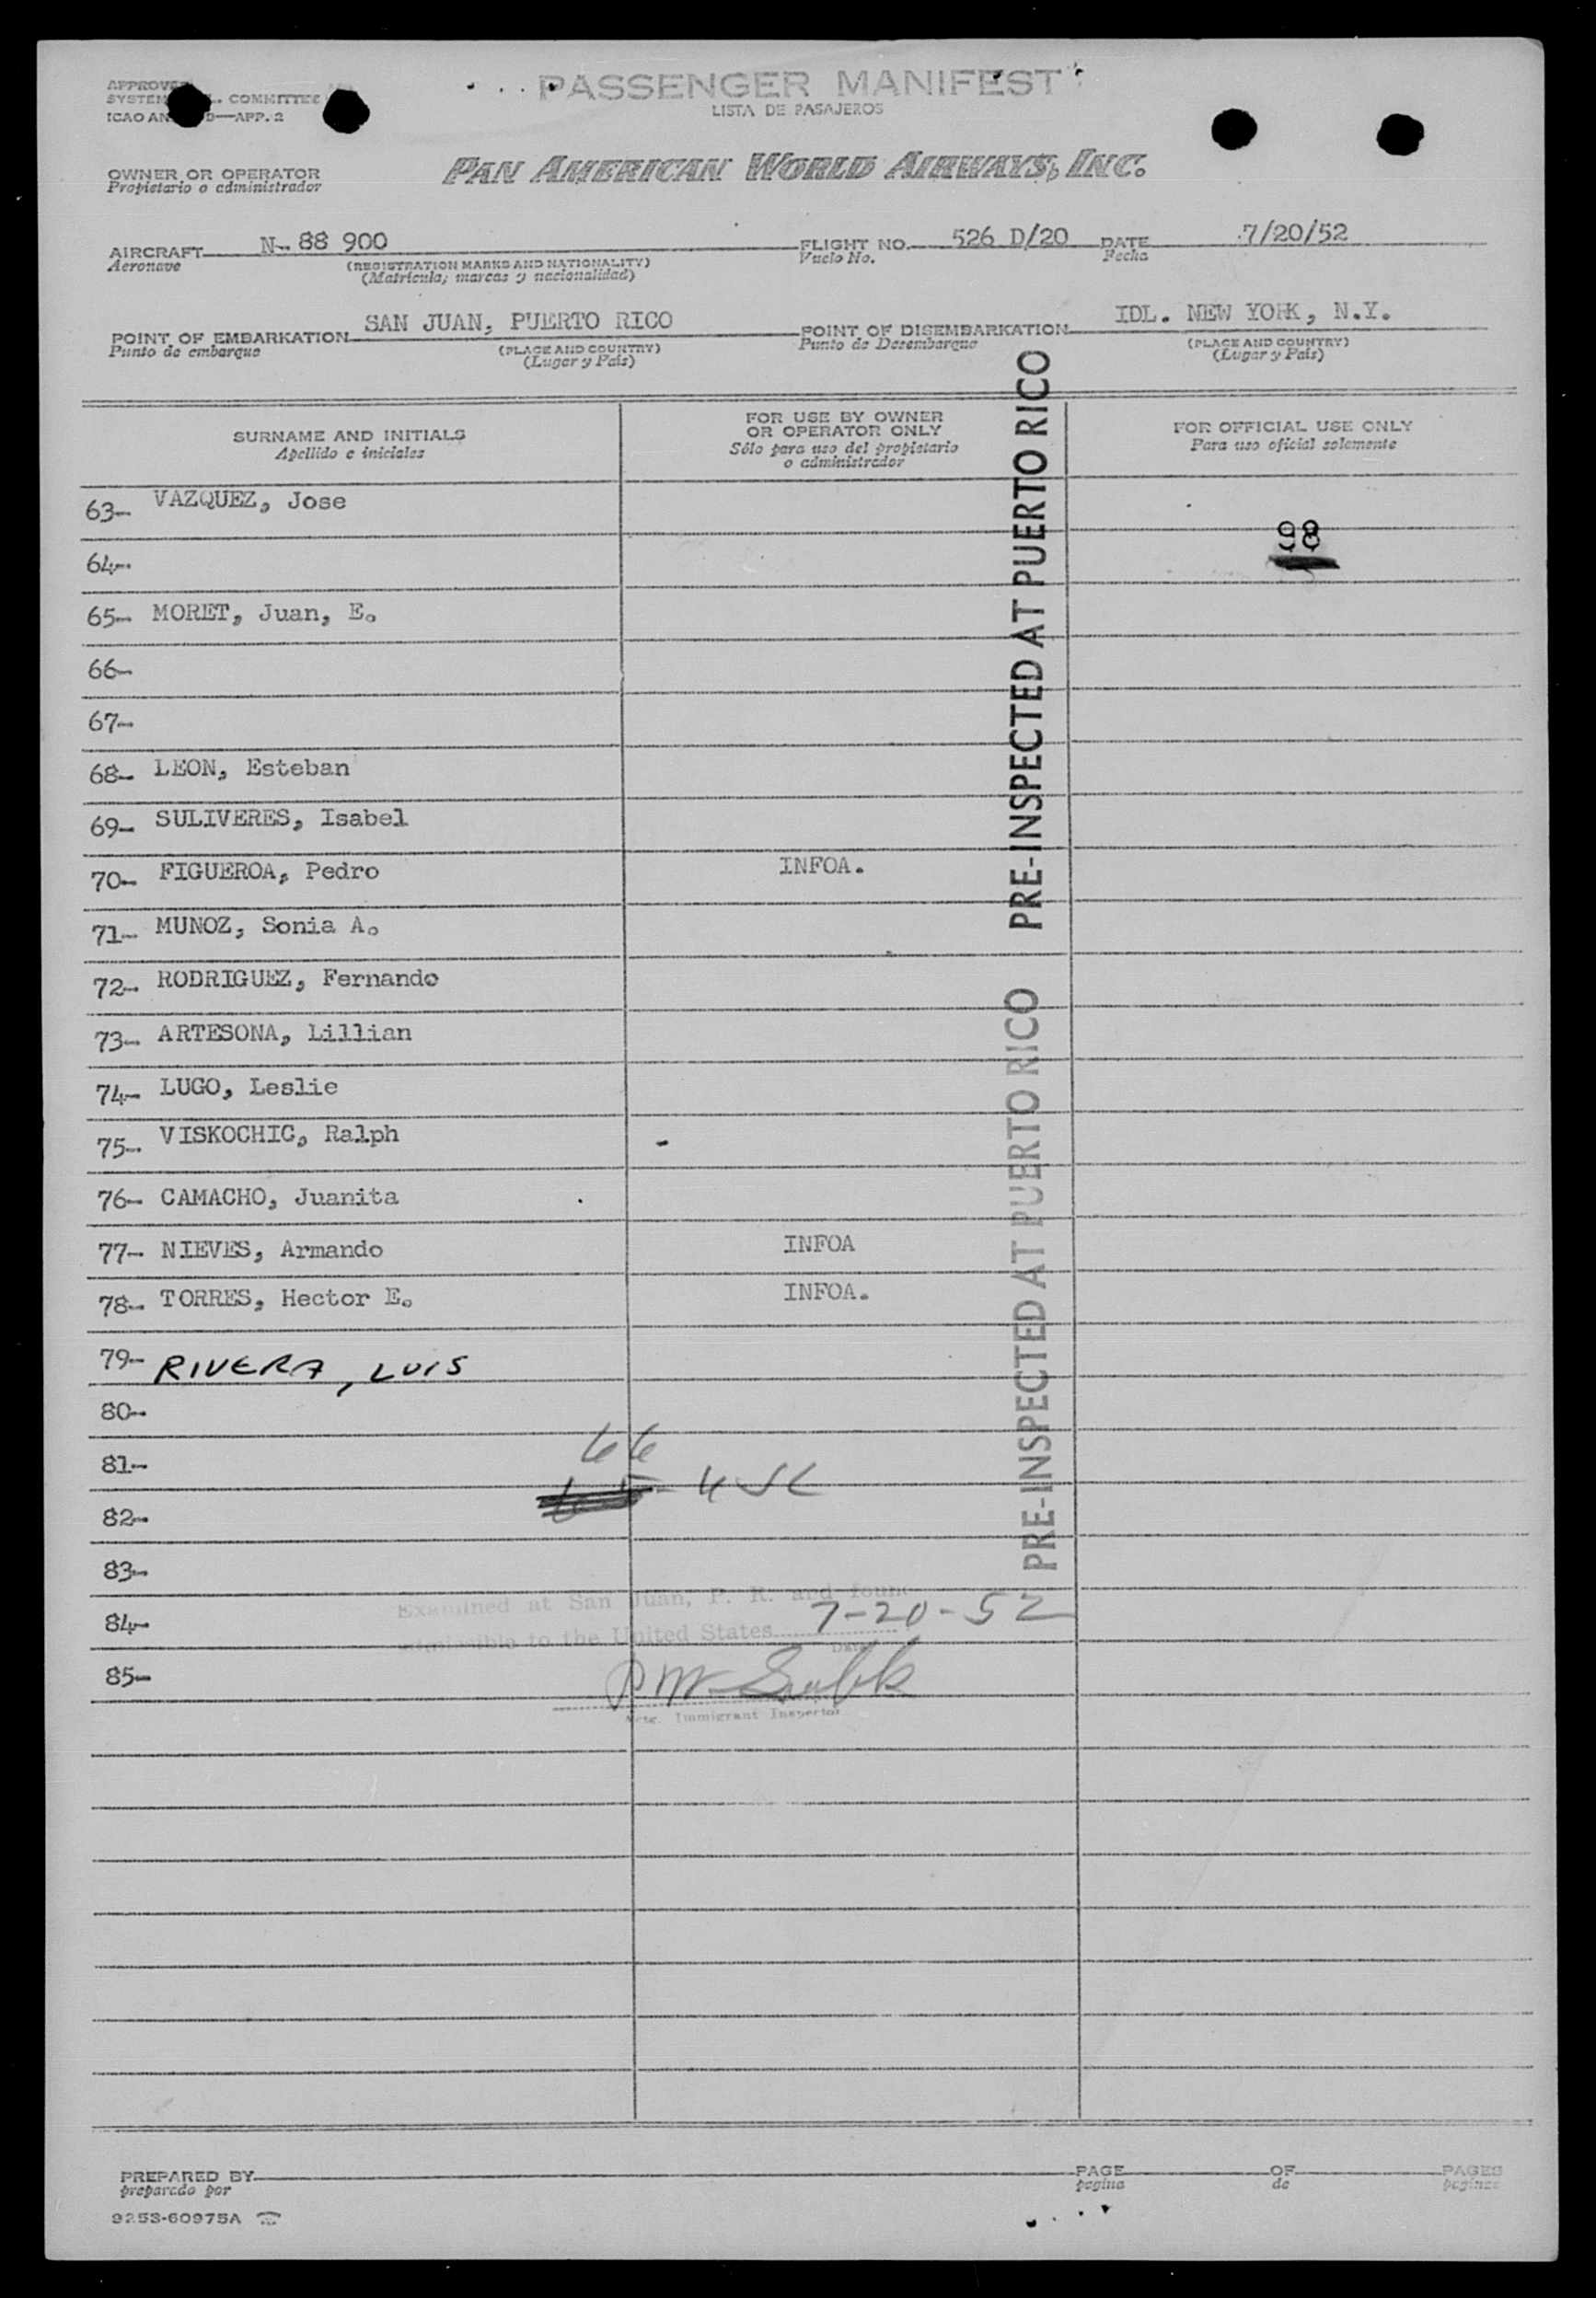 APPROVED
SYSTEM COMMITTEE
ICAO AN 9—APP. 2
PASSENGER MANIFEST
LISTA DE PASAJEROS
OWNER OR OPERATOR
Propietario o administrador
PAN AMERICAN WORLD AIRWAYS, INC.
AIRCRAFT N-88 900 FLIGHT NO. 526 D/20 DATE 7/20/52
Aeronave (REGISTRATION MARKS AND NATIONALITY) Vuelo No. Fecha
(Matricula, marcas y nacionalidad)
POINT OF EMBARKATION SAN JUAN, PUERTO RICO POINT OF DISEMBARKATION IDL. NEW YORK, N.Y.
Punto de embarque (PLACE AND COUNTRY) Punto de Desembarque (PLACE AND COUNTRY)
(Lugar y País) (Lugar y País)
SURNAME AND INITIALS
Apellido e iniciales
FOR USE BY OWNER
OR OPERATOR ONLY
Sólo para uso del propietario
o administrador
FOR OFFICIAL USE ONLY
Para uso oficial solamente
63- VAZQUEZ, Jose
98
64-
65- MORET, Juan, E.
66-
67-
68- LEON, Esteban
69- SULIVERES, Isabel
70- FIGUEROA, Pedro INFOA.
71- MUNOZ, Sonia A.
72- RODRIGUEZ, Fernando
73- ARTESONA, Lillian
74- LUGO, Leslie
75- VISKOCHIC, Ralph -
76- CAMACHO, Juanita
77- NIEVES, Armando INFOA
78- TORRES, Hector E. INFOA.
79- RIVERA, LUIS
80-
81- 66
82-
83-
84-
85-
PRE-INSPECTED AT PUERTO RICO
PRE-INSPECTED AT PUERTO RICO
Examined at San Juan, P. R. and found
admissible to the United States 7-20-52
Date
Actg. Immigrant Inspector
PREPARED BY PAGE OF PAGES
preparado por pagina de paginas
9253-60975A